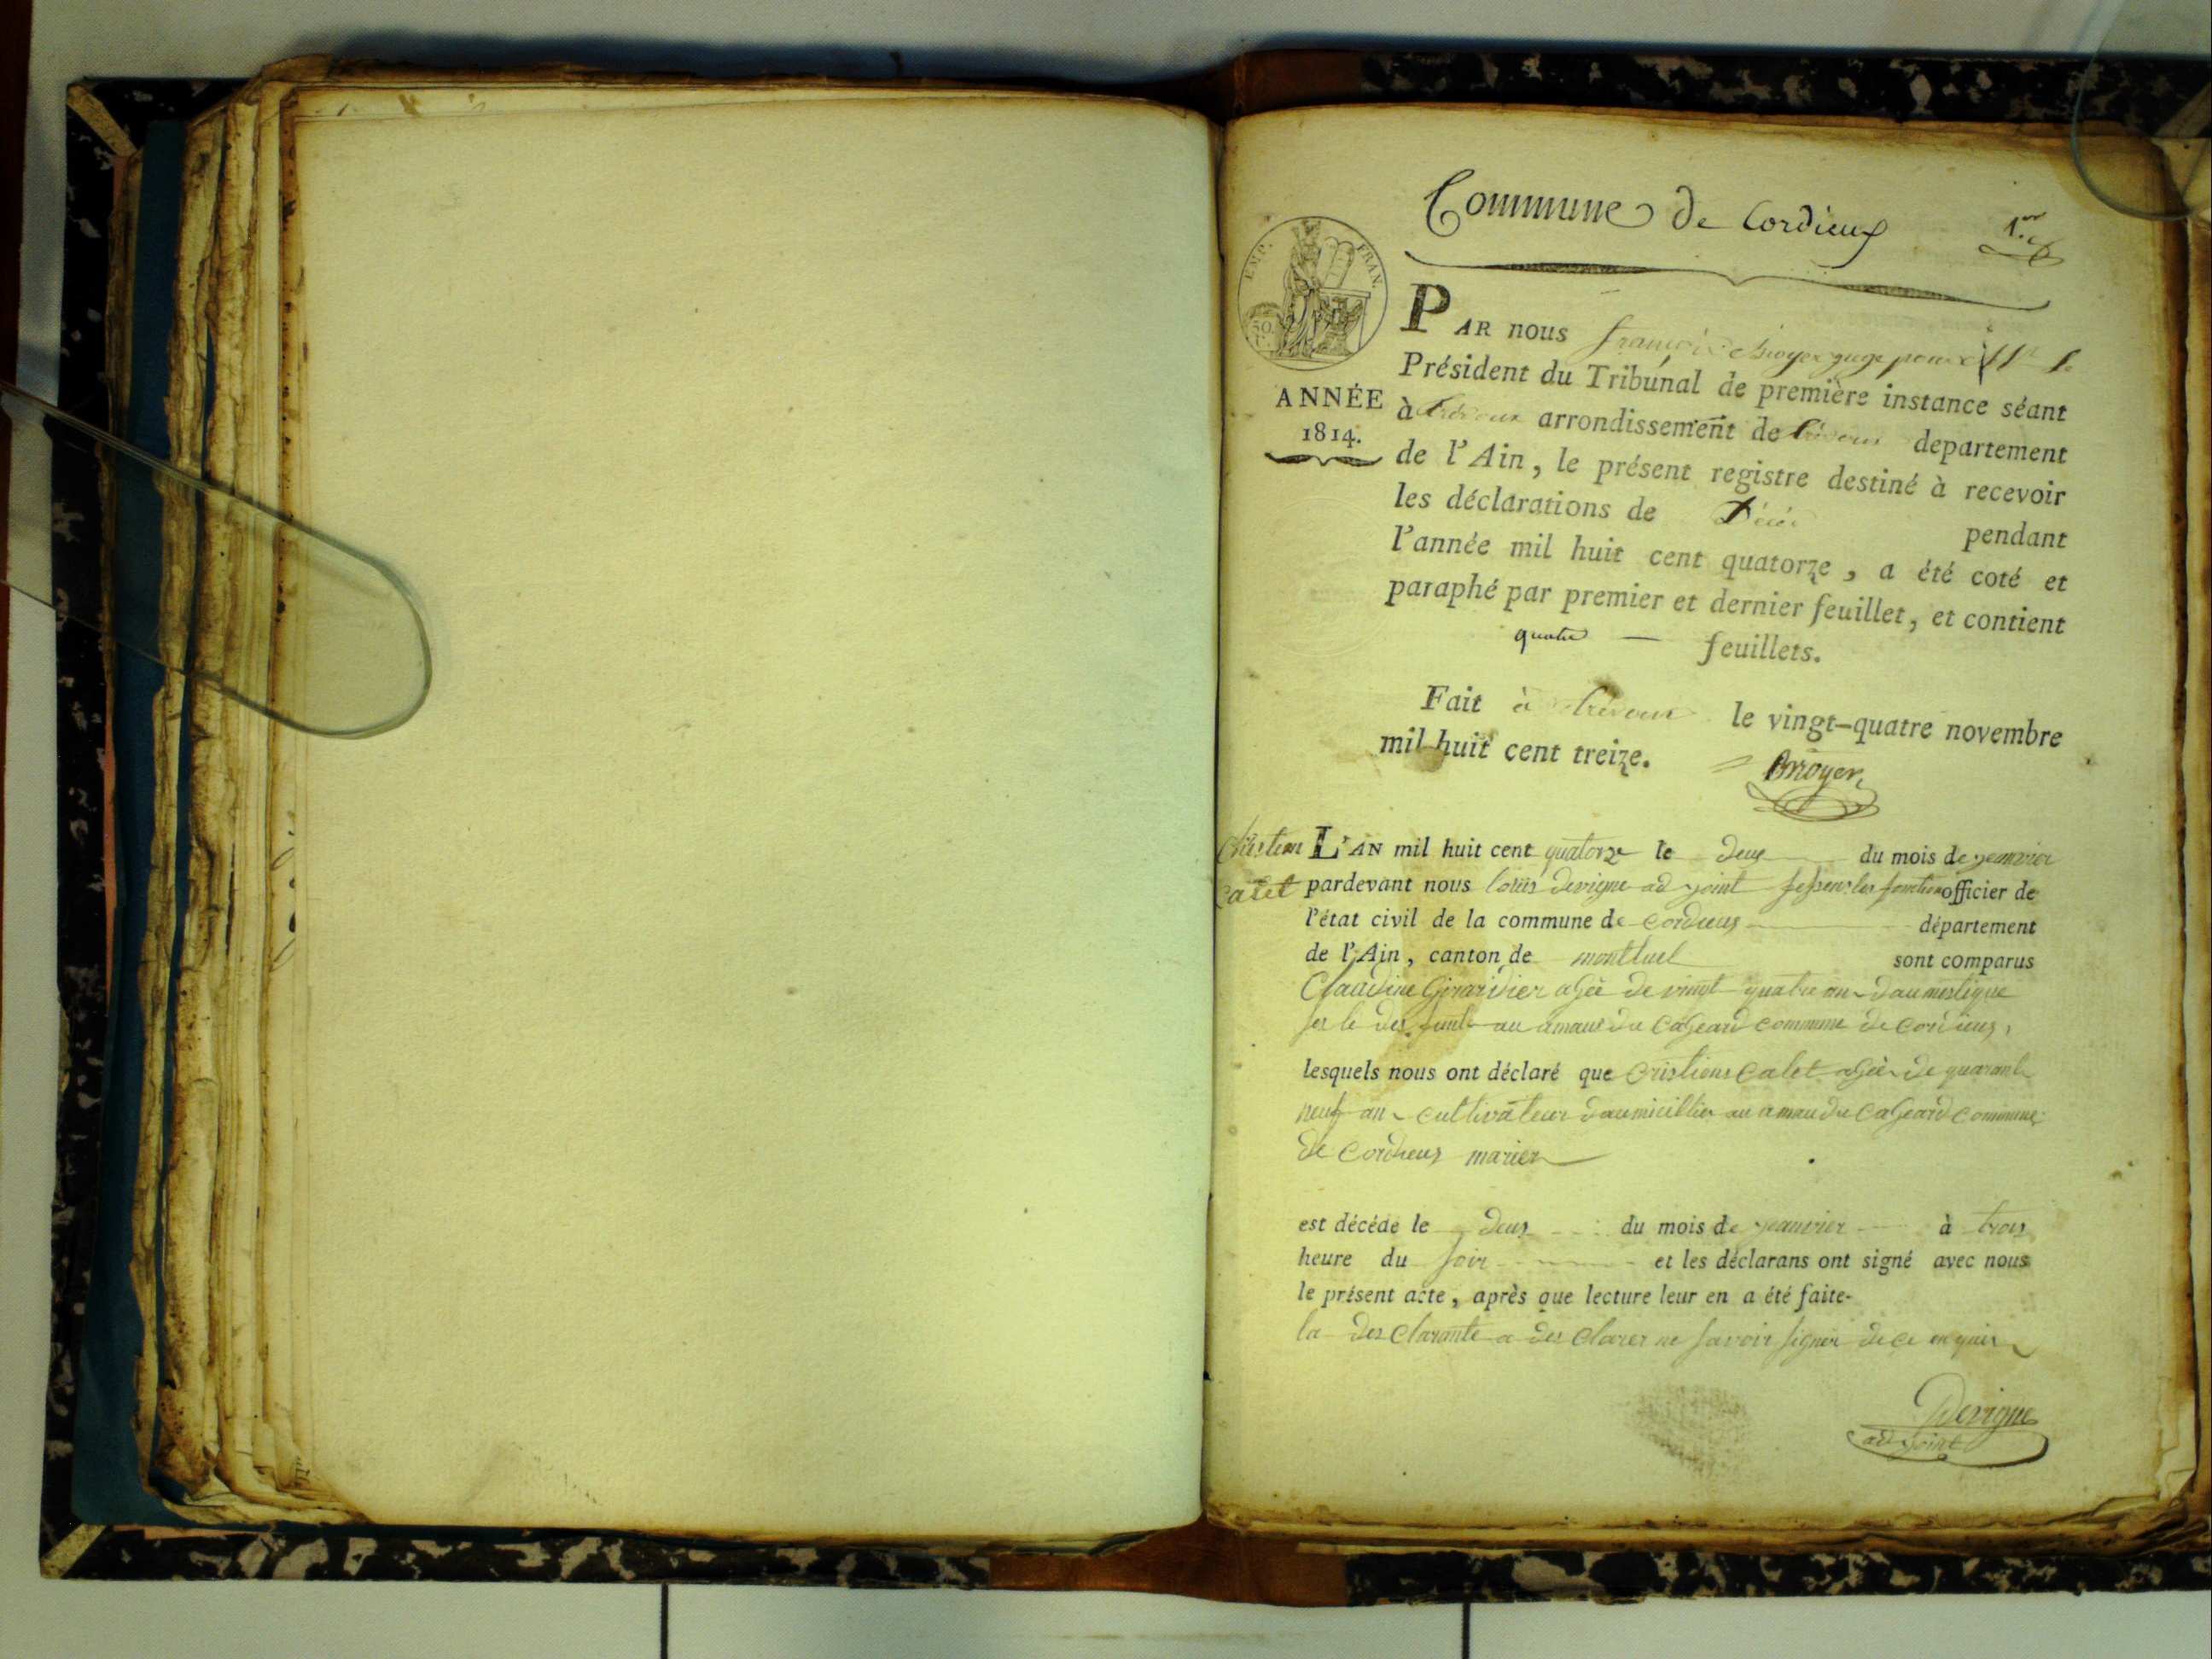 Commune de Cordieux
1.er
EMP. FRAN.
50.
PAR nous françois Brroyer juge pour
Président du Tribunal de première instance séant
à trévoux arrondissement de trévoux departement
de l'Ain, le présent registre destiné à recevoir
les déclarations de Décès pendant
l'année mil huit cent quatorze, a été coté et
paraphé par premier et dernier feuillet, et contient
quatre — feuillets.
ANNÉE
1814.
Fait à trévoux le vingt-quatre novembre
mil huit cent treize.
Brroyer
Cristien
Catet
L'AN mil huit cent quatorze le deux du mois de jeanvier
pardevant nous louis devigne ad joint officier de
l'état civil de la commune de Cordieux département
de l'Ain, canton de montluel sont comparus
Claudine Girardier agée de vingt quatre an daumestique
commune de Cordieux,
lesquels nous ont déclaré que Cristiens Catet agée de quarante
neuf an cultivateur daumicillier au amau du Cageard commune
de Cordieux marier
est décéde le deux du mois de jeanvier à trois
heure du soir et les déclarans ont signé avec nous
le présent acte, après que lecture leur en a été faite.
la des Clarante a des Clarer ne savoir signer de ce en quis
Devigne
ad joint